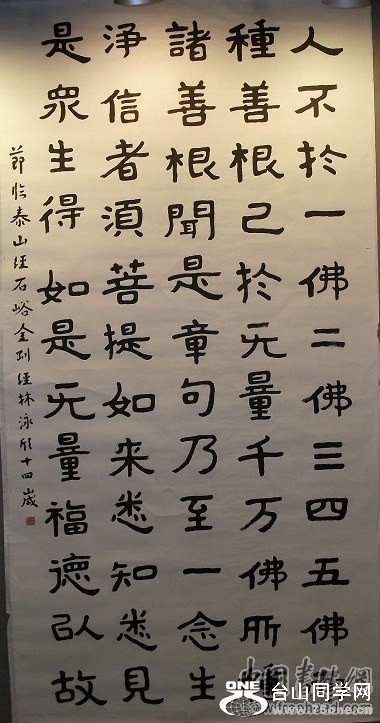 人不於一佛二佛三四五佛
種善根已於无量千万佛所
諸善根聞是章句乃至一念生
淨信者須菩提如来悉知悉見
是衆生得如是无量福德以故
莭临泰山經石峪金剛經林泳欣十四歲
ONE 台山同学网